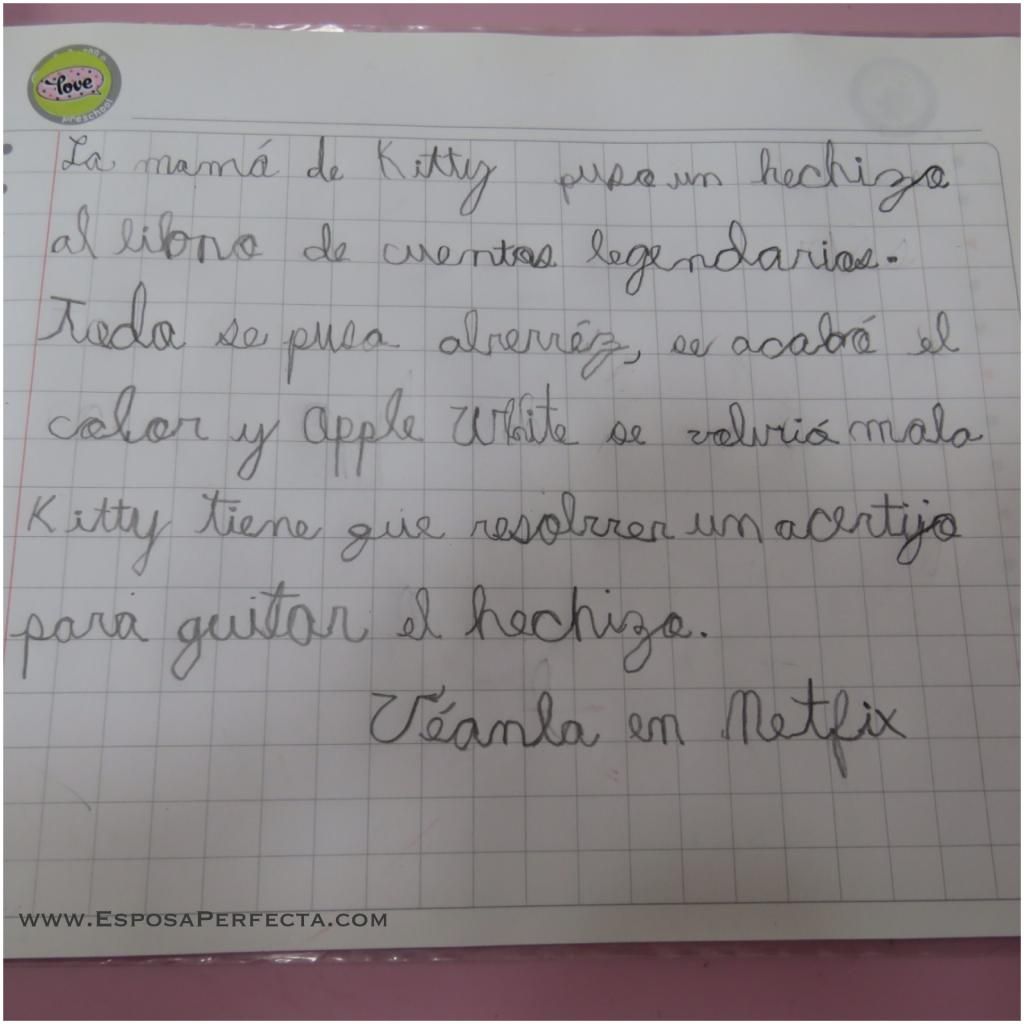 love
preschool
La mamá de Kitty puso un hechizo
al libro de cuentos legendarios.
Todo se puso alrevéz, se acabó el
color y Apple White se volvió mala
Kitty tiene que resolver un acertijo
para quitar el hechizo.
Véanla en Netfix
www.EsposaPerfecta.com